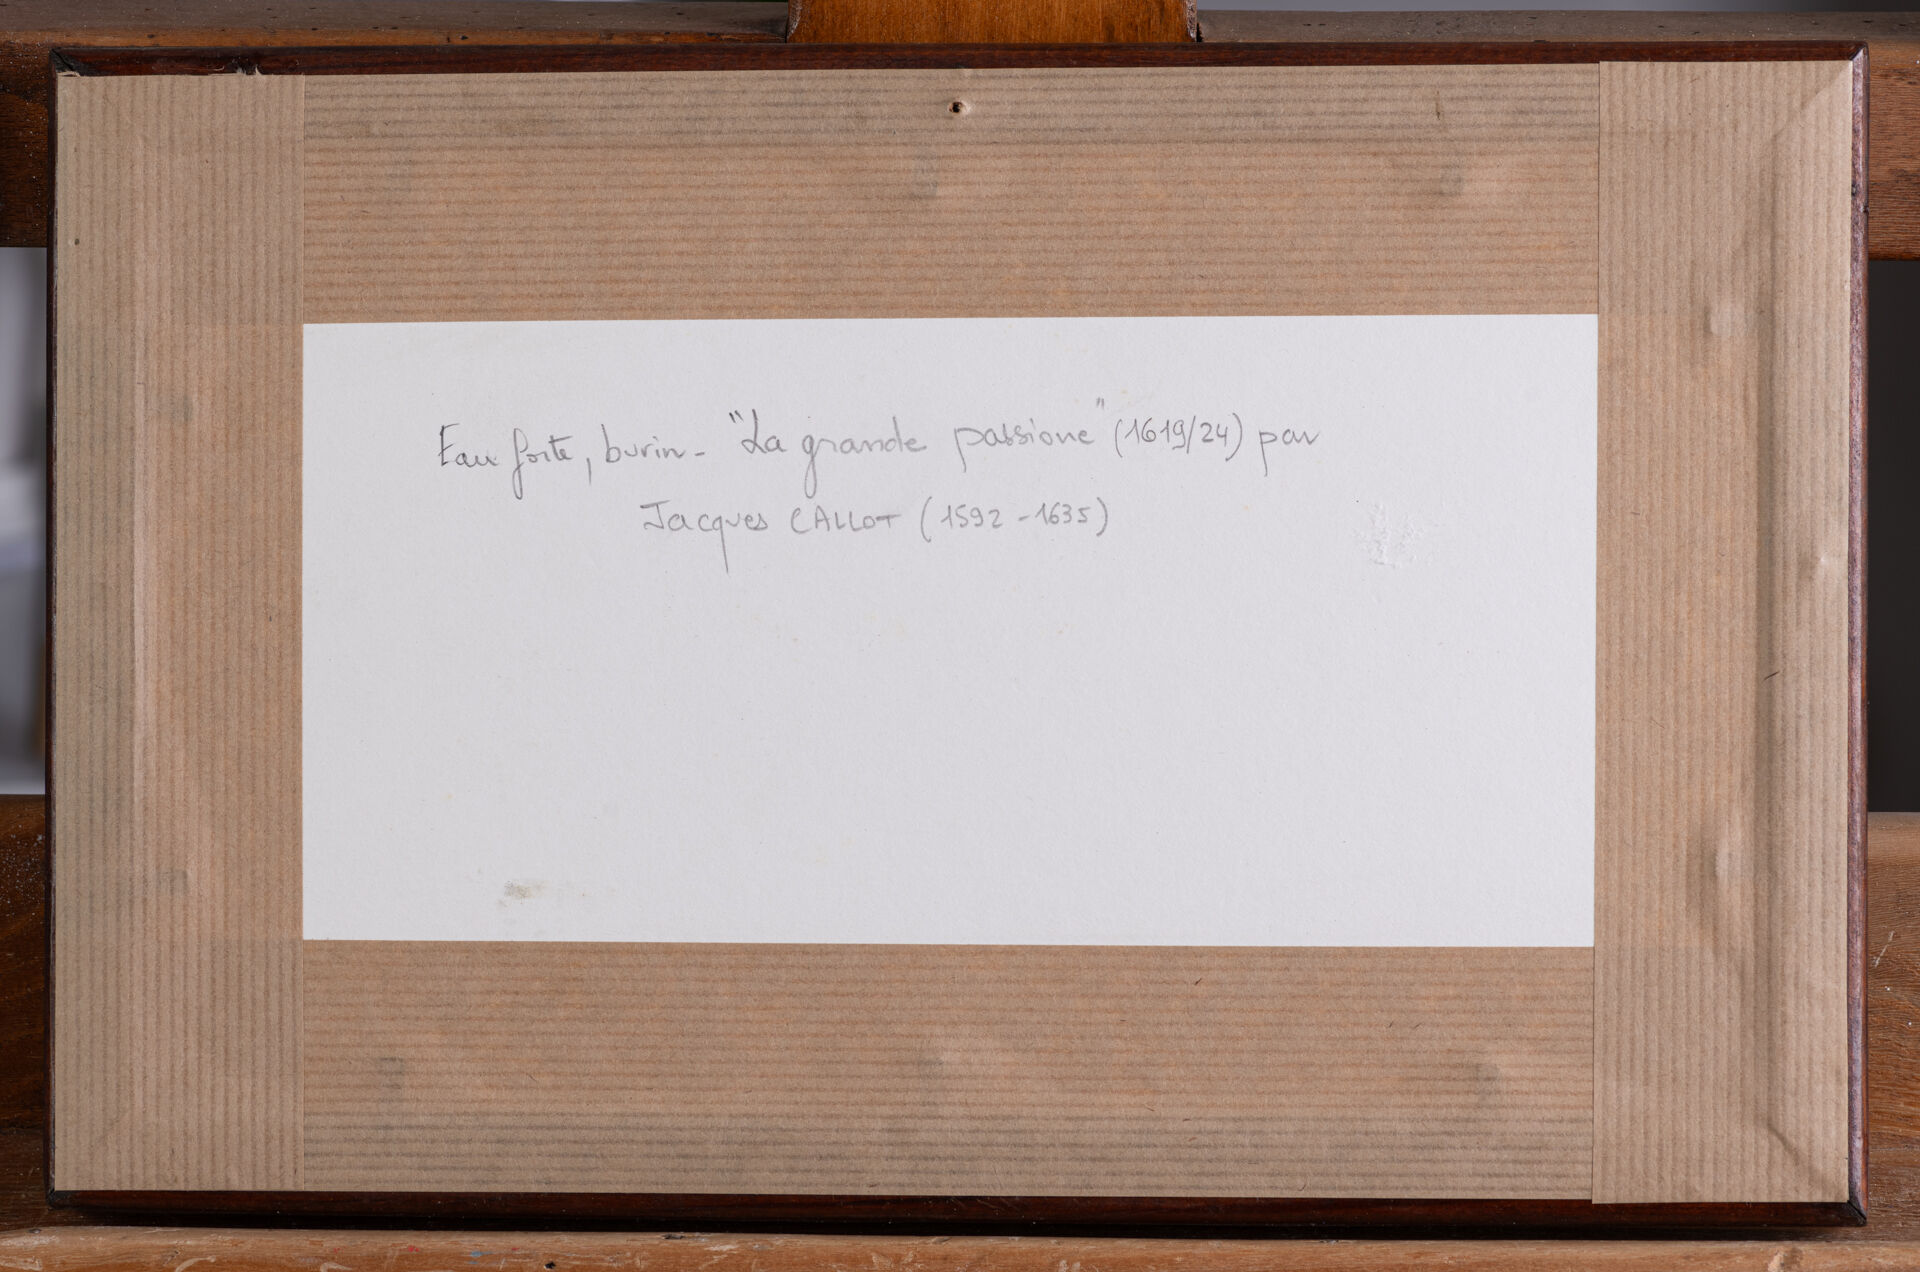 Eau forte, burin - "La grande passione" (1619/24) par
Jacques CALLOT (1592 - 1635)